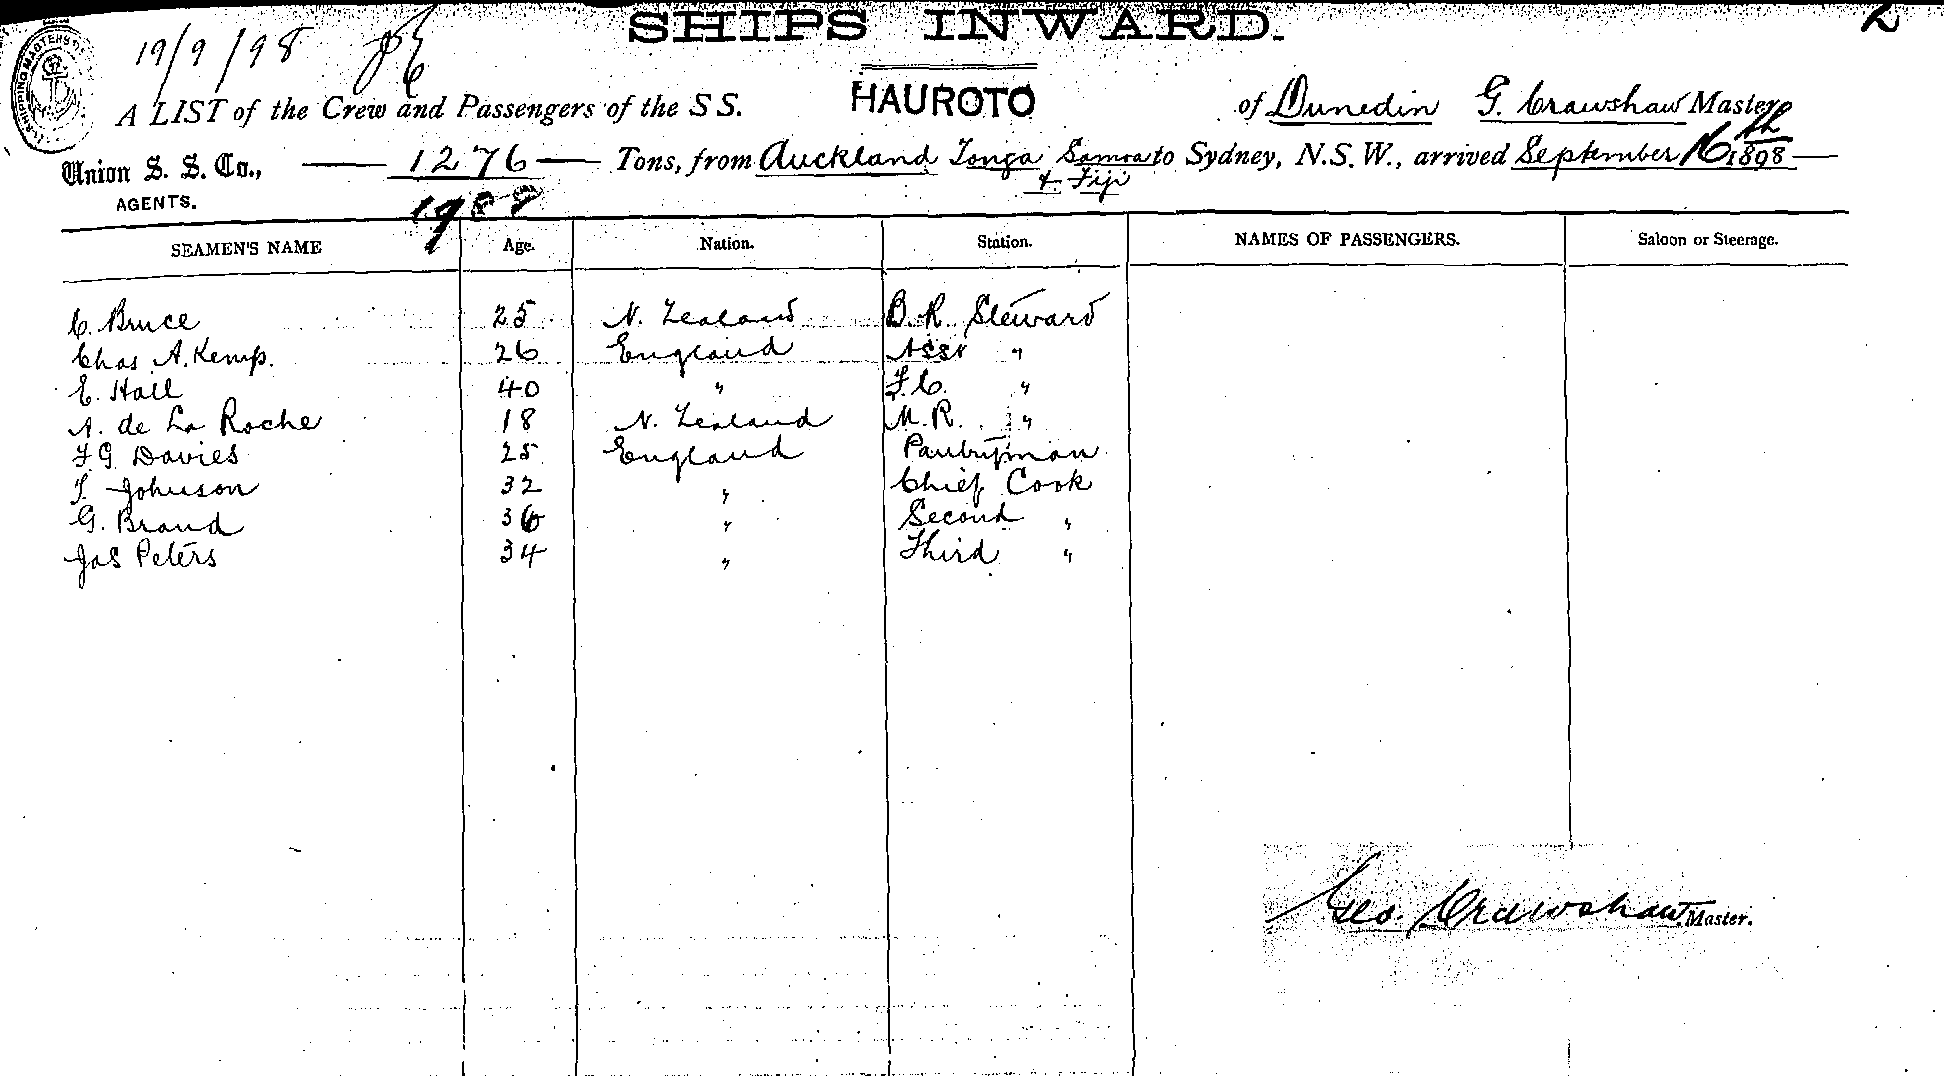 SHIPS INWARD. 2
19/9/98
SHIPPING MASTERS
A LIST of the Crew and Passengers of the SS. HAUROTO of Dunedin G. Crawshaw Master
Union S. S. Co., 1276 Tons, from Auckland Tonga Samoa to Sydney, N.S.W., arrived September 16th 1898
& Fiji
AGENTS.
SEAMEN'S NAME Age. Nation. Station. NAMES OF PASSENGERS. Saloon or Steerage.
C. Bruce 25 N. Zealand B. R. Steward
Chas A. Kemp. 26 England Asst "
E. Hall 40 " F.C. "
A. de La Roche 18 N. Zealand M.R. "
F G Davies 25 England Pantryman
T. Johnson 32 " Chief Cook
G. Brand 36 " Second "
Jas Peters 34 " Third "
Geo. Crawshaw Master.